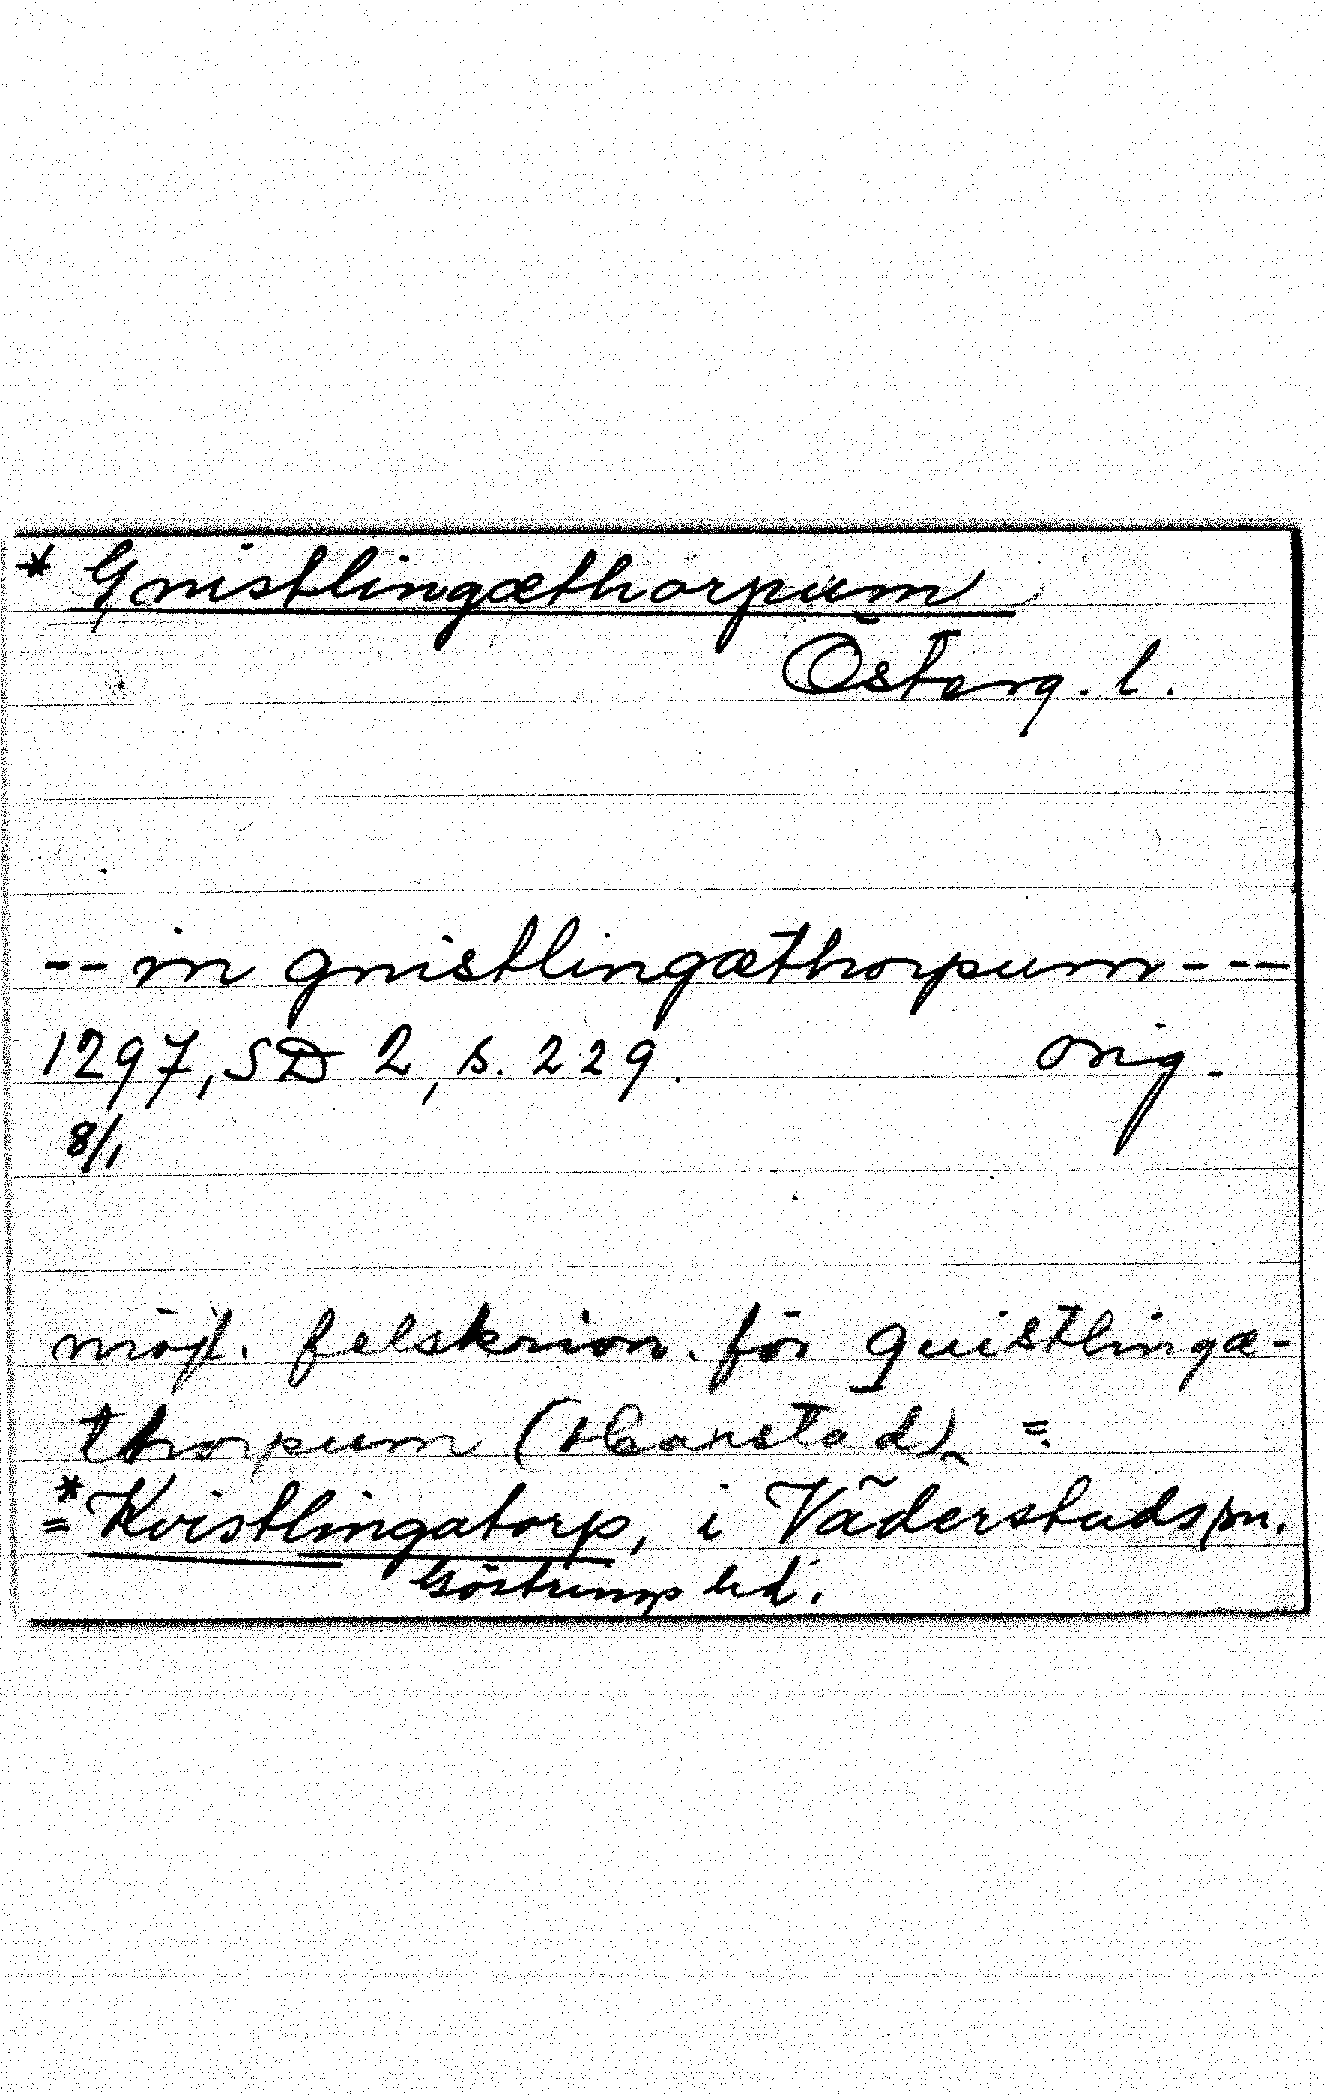 * Gnistlingæthorpum
Österg. l.
-- in gnistlingæthorpum ---
1297, SD 2, s. 229. orig.
8/1
möjl. felskrivn. för quistlingæ-
thorpum (Hanstad) =
=* Kvistlingatorp, i Väderstads sn.
Göstrings hd.